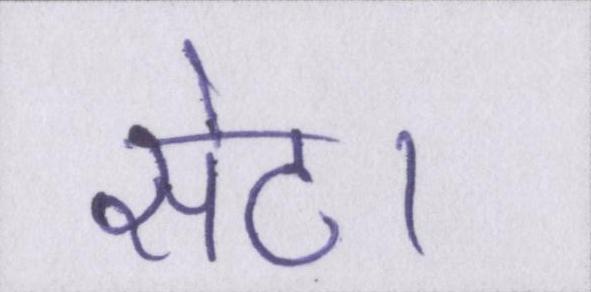 सेट।